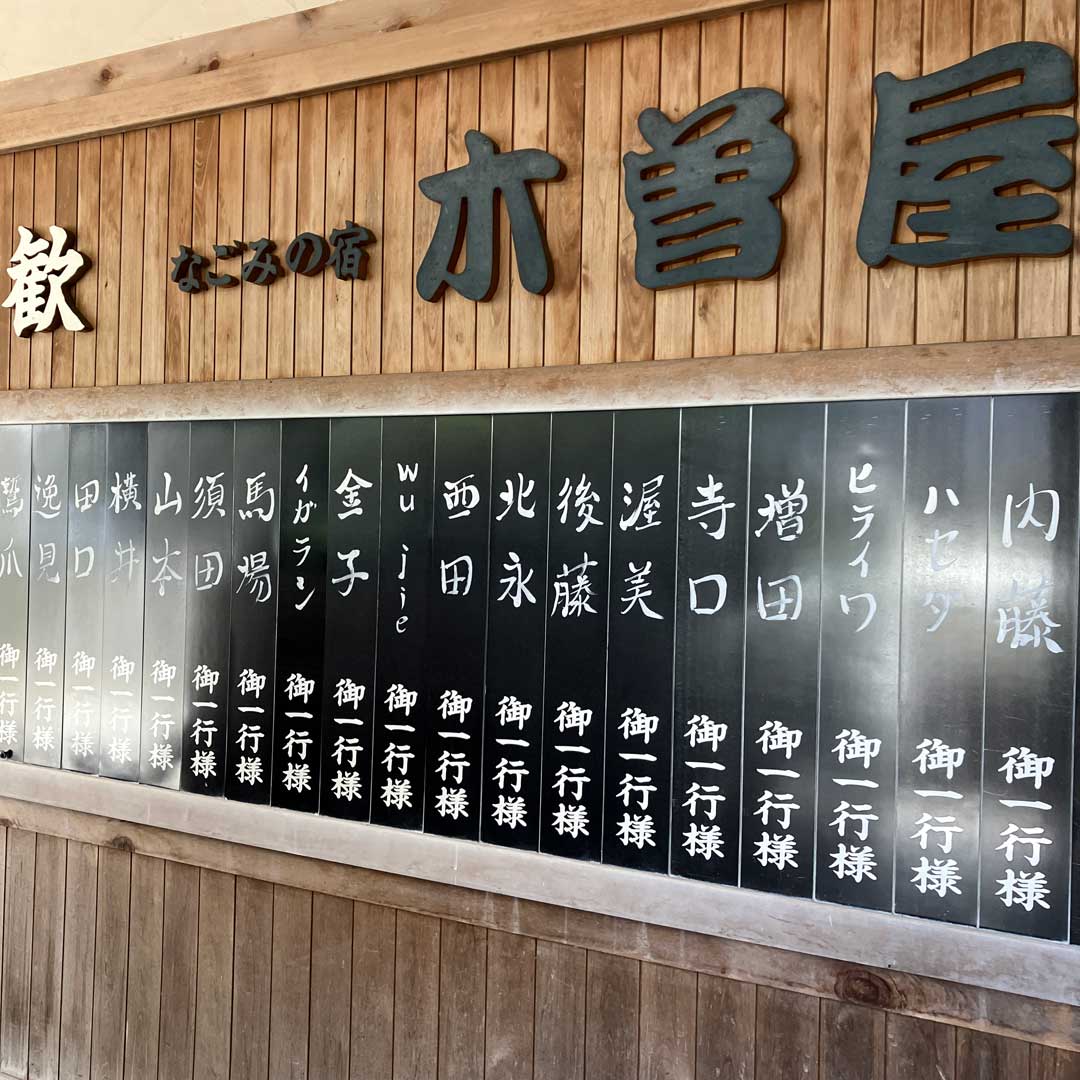 歓
なごみの宿
木曽屋
内藤 御一行様
ハセダ 御一行様
ヒライワ 御一行様
増田 御一行様
寺口 御一行様
渥美 御一行様
後藤 御一行様
北永 御一行様
西田 御一行様
wu jie 御一行様
金子 御一行様
イガラシ 御一行様
馬場 御一行様
須田 御一行様
山本 御一行様
横井 御一行様
田口 御一行様
逸見 御一行様
鷲爪 御一行様